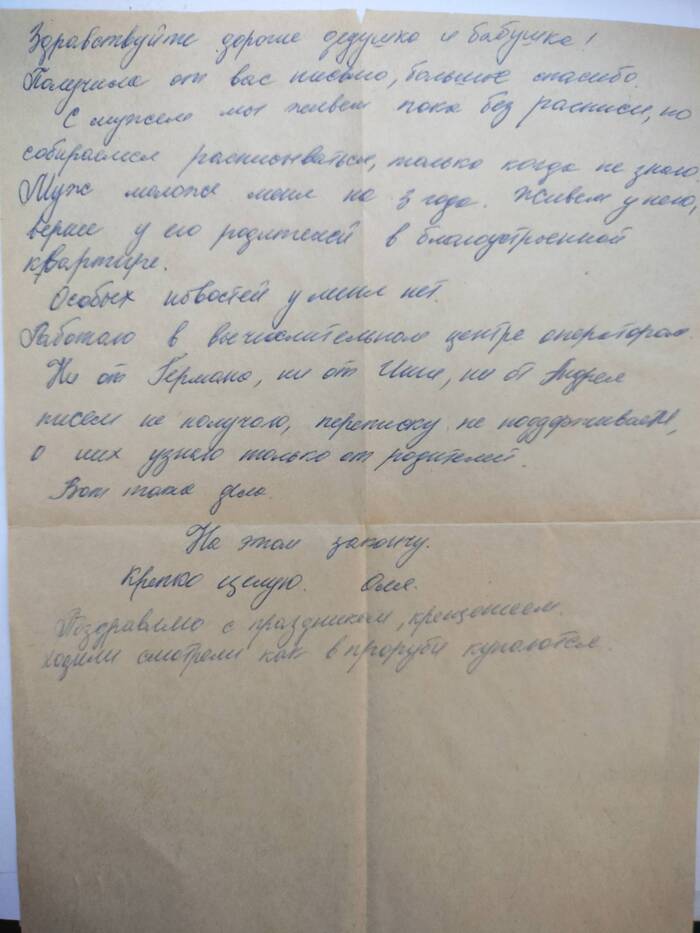 Здравствуйте дорогие дедушка и бабушка!
Получила от вас письмо, большое спасибо.
С мужем мы живем пока без росписи, но
собираемся расписываться, только когда не знаю.
Муж моложе меня на 3 года. Живем у него,
вернее у его родителей в благоустроенной
квартире.
Особых новостей у меня нет.
Работаю в вычислительном центре оператором.
Ни от Германа, ни от Инны, ни от Андрея
писем не получаю, переписку не поддерживаем,
о них узнаю только от родителей.
Вот такие дела.
На этом закончу.
Крепко целую. Оля.
Поздравляю с праздником, крещением.
Ходили смотрели как в проруби купаются.